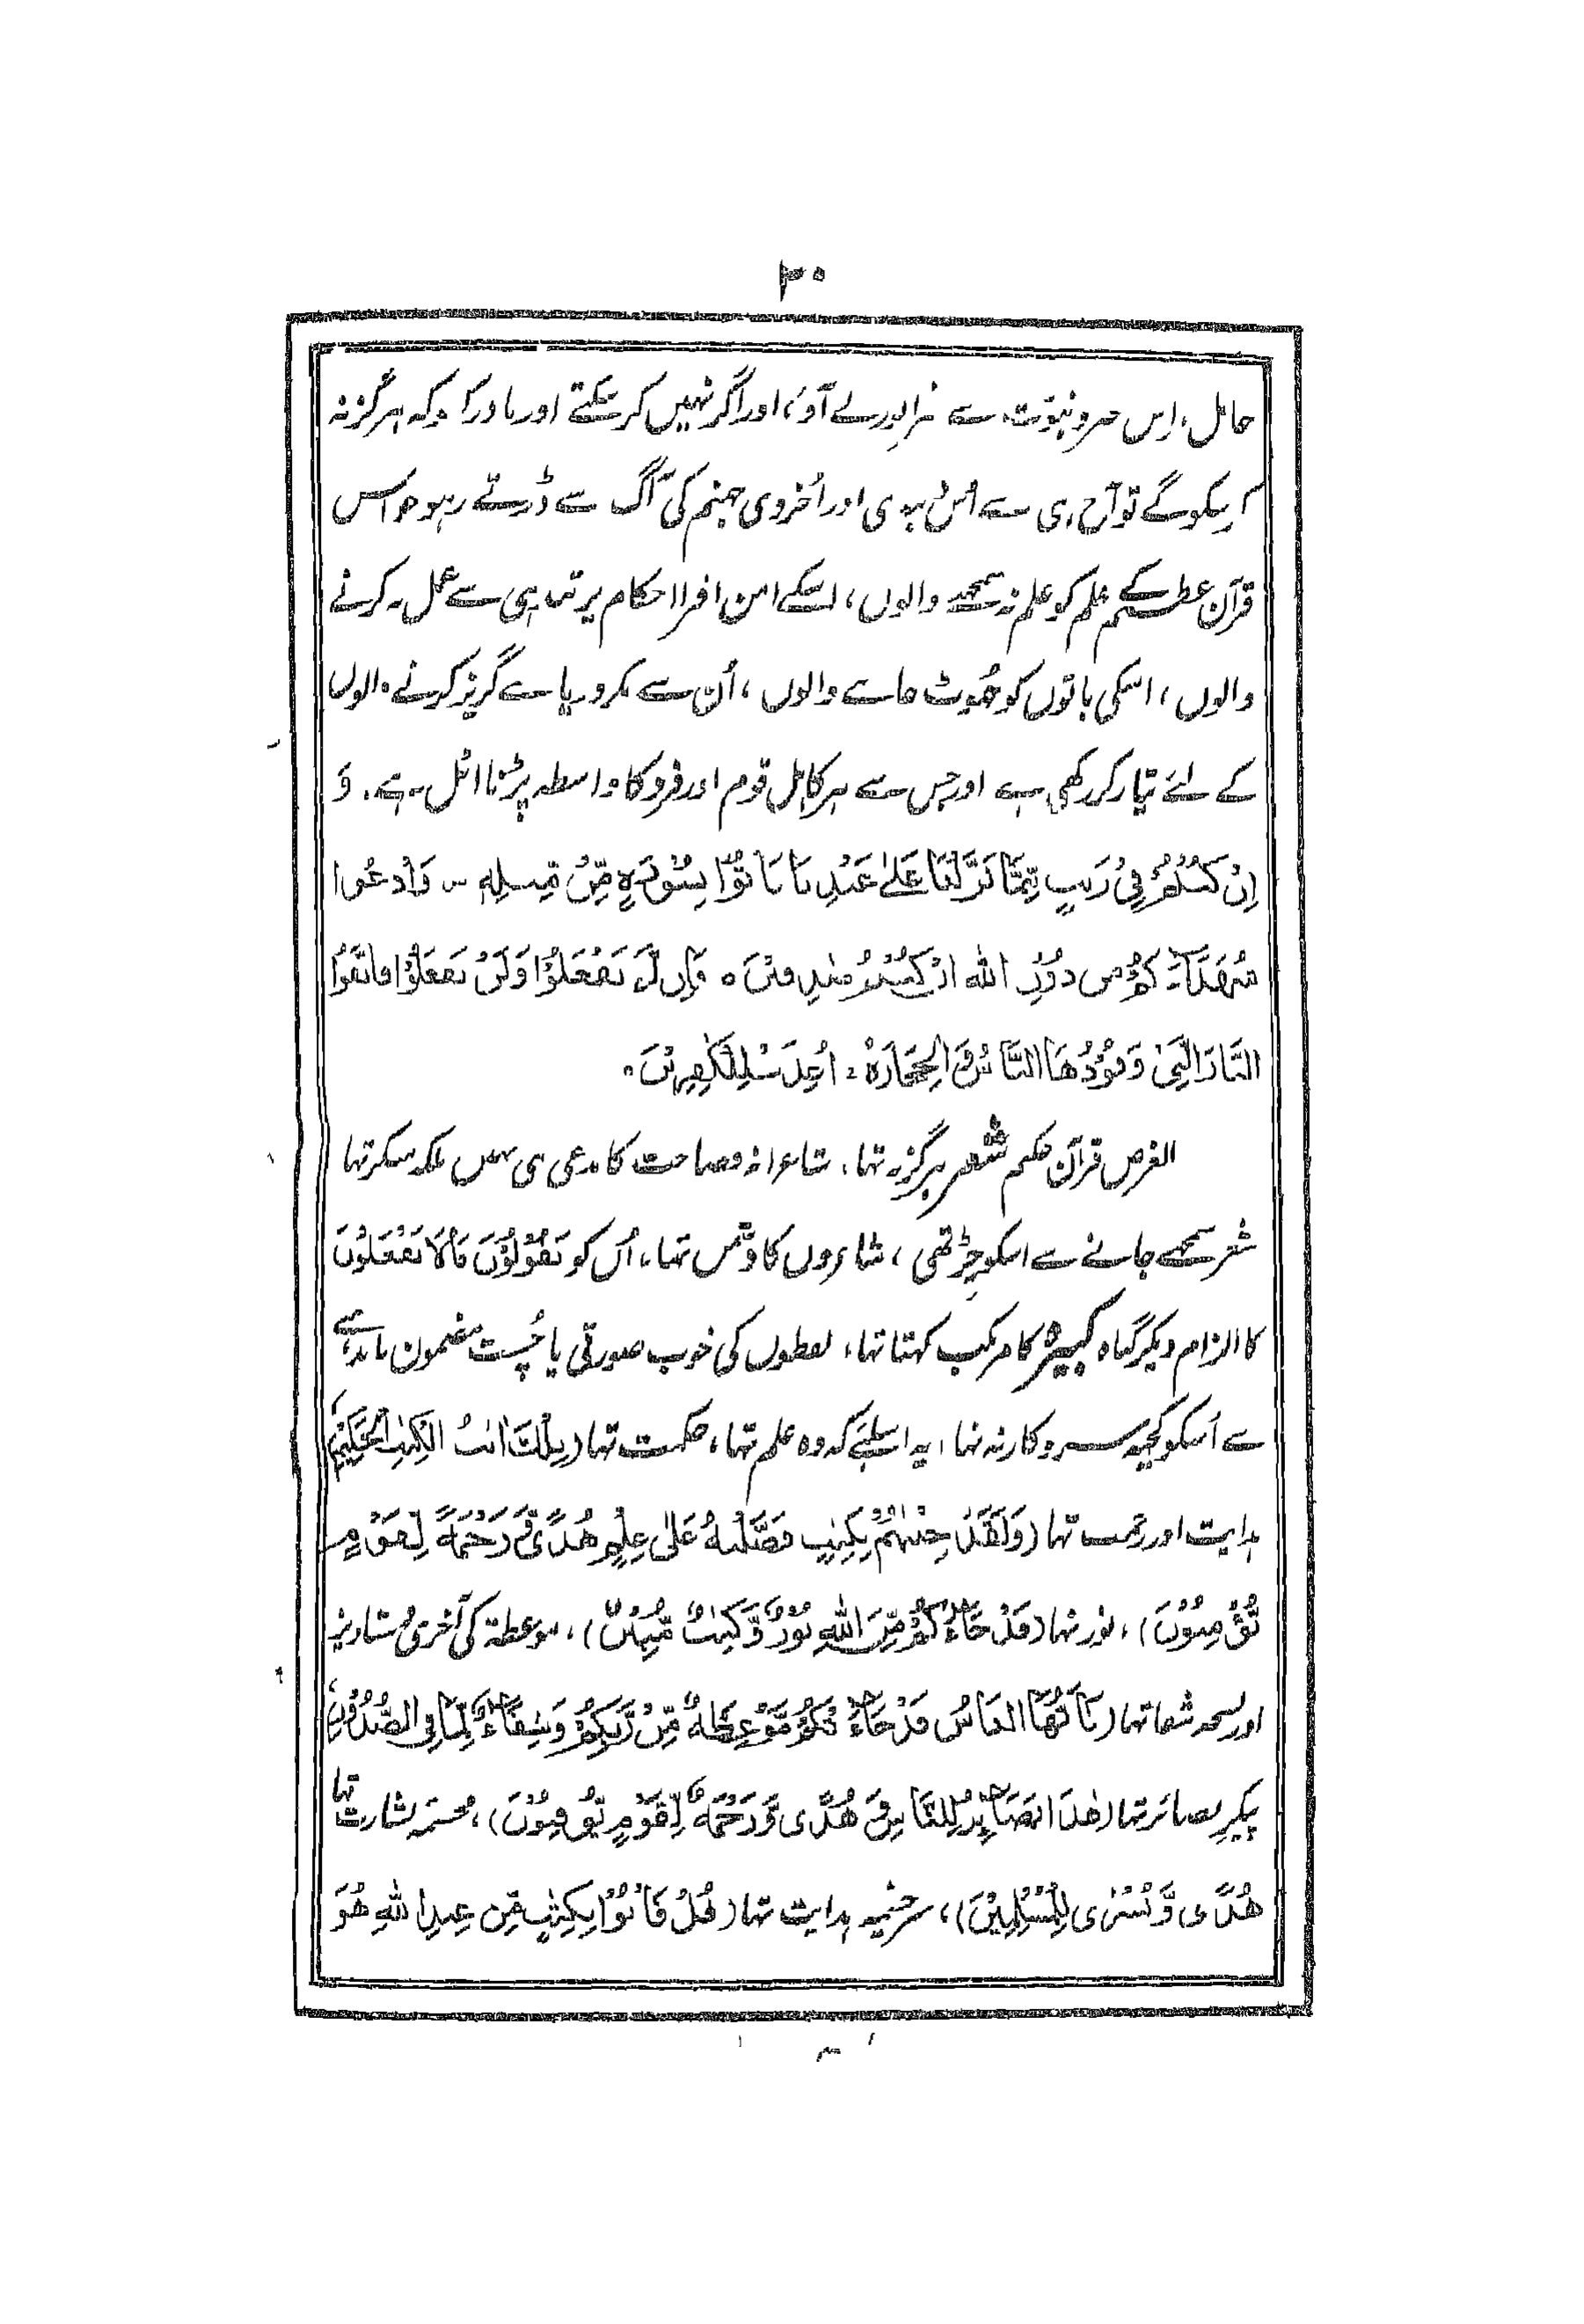 ۳۰
حامل، اِس سے لے آؤ، اور اگر نہیں کر سکتے اور یاد رکھو کہ ہرگز نہ
کر سکوگے تو آج ہی سے اُس اور اُخروی جہنم کی آگ سے ڈرتے رہو جو اس
قرآن عظیم کے علم کو علم نہ سمجھنے والوں، اسکے امن افزا احکام پر ہی سے عمل نہ کرنے
والوں، اسکی باتوں کو جھوٹ جاننے والوں، اُن سے مکر و ریا سے گریز کرنے والوں
کے لئے تیار کر رکھی ہے اور جس سے ہر کاہل قوم اور فرد کا واسطہ پڑنا اٹل ہے۔ وَ
اِنْ كُنْتُمْ فِیْ رَیْبٍ مِّمَّا نَزَّلْنَا عَلٰی عَبْدِنَا فَاْتُوْا بِسُوْرَةٍ مِّنْ مِّثْلِهٖ ۔ وَادْعُوْا
شُهَدَآءَكُمْ مِّنْ دُوْنِ اللّٰهِ اِنْ كُنْتُمْ صٰدِقِیْنَ ۰ فَاِنْ لَّمْ تَفْعَلُوْا وَلَنْ تَفْعَلُوْا فَاتَّقُوا
النَّارَ الَّتِیْ وَقُوْدُهَا النَّاسُ وَالْحِجَارَةُ ۚ اُعِدَّتْ لِلْكٰفِرِیْنَ ۰
الغرض قرآن حکیم شعر ہرگز نہ تھا، شاعرانہ فصاحت کا مدعی ہی نہیں بلکہ منکر تھا
شعر سمجھے جانے سے اسکو چِڑ تھی، شاعروں کا دشمن تھا، اُن کو یَقُوْلُوْنَ مَا لَا یَفْعَلُوْنَ
کا الزام دیکر گناہ کبیرہ کا مرتکب کہتا تھا، لفظوں کی خوب صورتی یا چُست مضمون باندھنے
سے اُسکو کچھ سروکار نہ تھا، یہ اسلئے کہ وہ علم تھا، حکمت تھا (تِلْكَ اٰیٰتُ الْكِتٰبِ الْحَكِیْمِ)
ہدایت اور رحمت تھا (وَلَقَدْ جِئْنٰهُمْ بِكِتٰبٍ فَصَّلْنٰهُ عَلٰی عِلْمٍ هُدًی وَّرَحْمَةً لِّقَوْمٍ
یُّؤْمِنُوْنَ)، نور تھا (قَدْ جَآءَكُمْ مِّنَ اللّٰهِ نُوْرٌ وَّكِتٰبٌ مُّبِیْنٌ)، موعظۃ کی آخری دستاویز
اور نسخہ شفا تھا (یٰۤاَیُّهَا النَّاسُ قَدْ جَآءَتْكُمْ مَّوْعِظَةٌ مِّنْ رَّبِّكُمْ وَشِفَآءٌ لِّمَا فِی الصُّدُوْرِ)
پیکرِ بصائر تھا (هٰذَا بَصَآئِرُ لِلنَّاسِ وَهُدًی وَّرَحْمَةٌ لِّقَوْمٍ یُّوْقِنُوْنَ)، بشارت تھا
هُدًی وَّبُشْرٰی لِلْمُسْلِمِیْنَ)، سرچشمہ ہدایت تھا (قُلْ فَاْتُوْا بِكِتٰبٍ مِّنْ عِنْدِ اللّٰهِ هُوَ